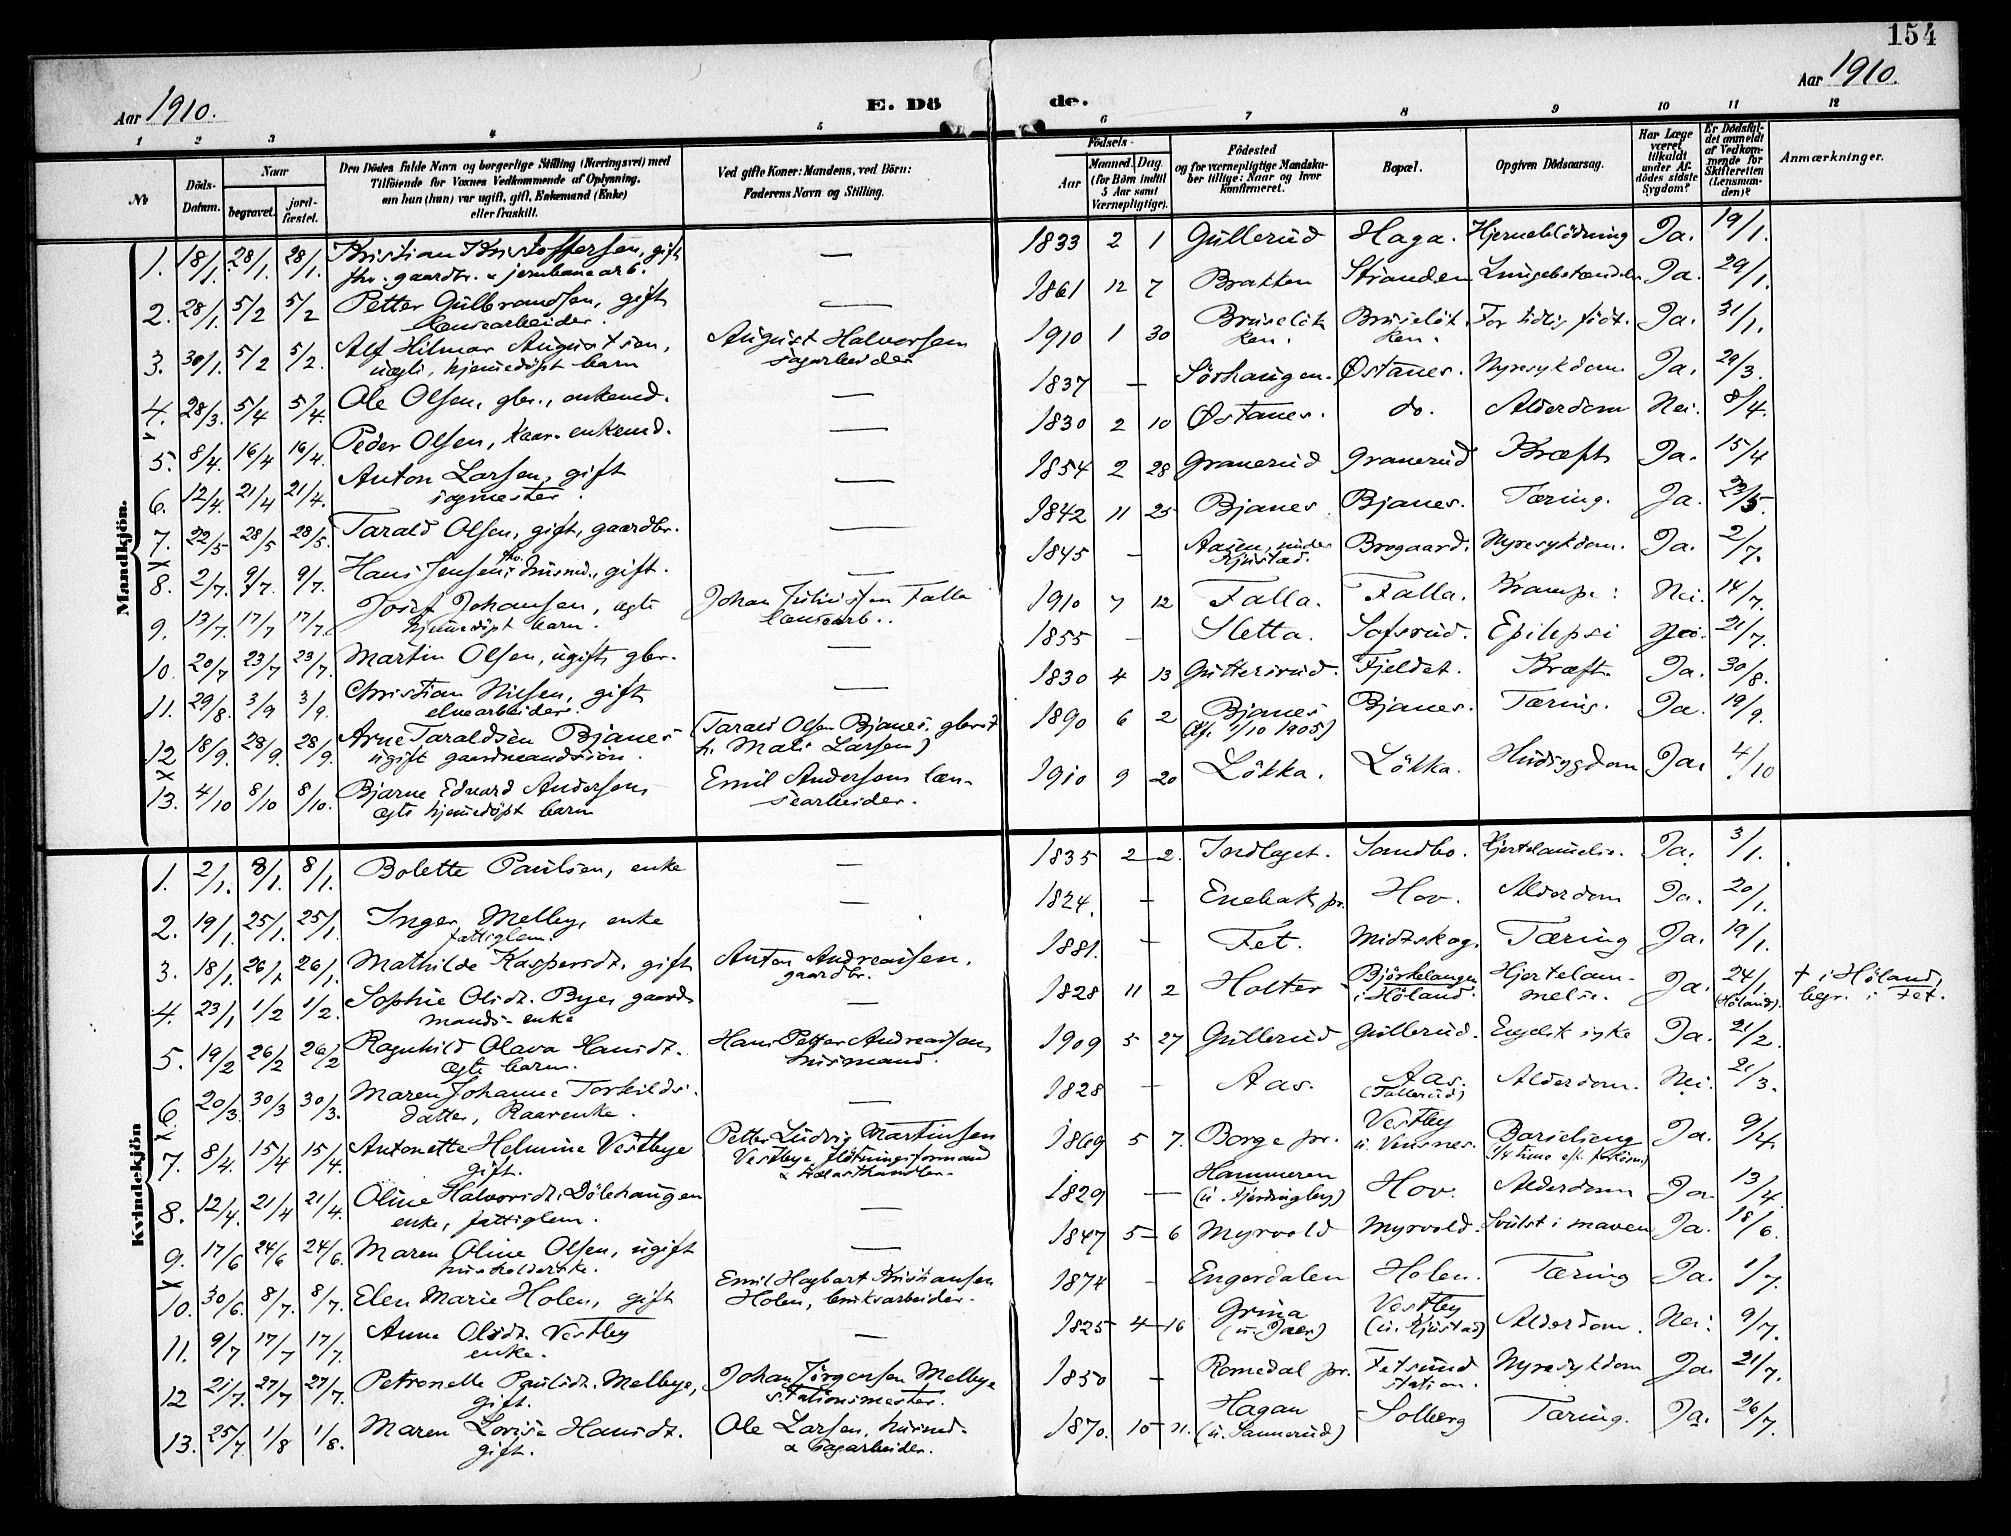 154
Aar 1910.
E. Dö de.
Aar 1910.
1 2 3 4 5 6 7 8 9 10 11 12
No
Döds-Datum.
Naar
begravet.
jord-fæstet.
Den Dödes fulde Navn og borgerlige Stilling (Næringsvei) med
Tilföiende for Voxnes Vedkommende af Oplysning,
om han (hun) var ugift, gift, Enkemand (Enke)
eller fraskilt.
Ved gifte Koner: Mandens, ved Börn:
Faderens Navn og Stilling.
Födsels-
Aar
Maaned. Dag.
(for Börn indtil
5 Aar samt
Værnepligtige).
Födested
og for værnepligtige Mandska-
ber tillige: Naar og hvor
konfirmeret.
Bopæl.
Opgiven Dödsaarsag.
Har Læge
været
tilkaldt
under Af-
dödes sidste
Sygdom?
Er Dödsfal-
det anmeldt
af Vedkom-
mende for
Skifteretten
(Lensman-
den)?
Anmærkninger.
Mandkjön.
1. 18/1. 28/1. 28/1. Kristian Kristoffersen, gift — 1833 2 1 Gullerud Haga. Hjerneblödning Ja. 19/1.
fhv. gaardbr. & jernbanearb.
2. 28/1. 5/2 5/2 Petter Gulbrandsen, gift — 1861 12 7 Bratten Stranden Ja. 29/1.
lensearbeider.
3. 30/1. 5/2 5/2. Alf Hilmar Augustson, August Halvorsen 1910 1 30 For tidlig födt. Ja. 31/1.
uægte, hjemmedöpt barn sagarbeider
4. 28/3. 5/4 5/4. Ole Olsen, gbr., enkemd. — 1837 — Sörhaugen. Østanes. Nyresykdom Ja. 29/3.
5. 8/4. 16/4 16/4. Peder Olsen, kaar-enkemd. — 1830 2 10 Østanes. do. Alderdom Nei. 8/4.
6. 12/4. 21/4 21/4. Anton Larsen, gift — 1854 2 28 Granerud Granerud Kræft Ja. 15/4
sagmester.
7. 22/5 28/5 28/5. Tarald Olsen, gift, gaardbr. — 1842 11 25 Bjanes Bjanes. Tæring. Ja. 23/5.
8. 2/7. 9/7. 9/7. Hans Jensen, fhv. husmd., gift. — 1845 — Aasen, under Brogaard. Nyresykdom. Ja. 2/7.
Kjustad.
9. 13/7. 17/7 17/7. Josef Johansen, ægte Falla 1910 7 12 Falla. Falla. Krampe. Nei. 14/7.
hjemmedöpt barn. lensearb.
10. 20/7 23/7 23/7. Martin Olsen, ugift, gbr. — 1855 — Sletta. Sofsrud. Epilepsi Nei. 21/7.
11. 29/8. 3/9 3/9. Christian Nilsen, gift — 1830 4 13 Guttersrud. Fjeldet. Kræft. Ja. 30/8.
12 18/9. 28/9. 28/9. Arne Taraldsen Bjanes (Tarald Olsen Bjanes, gbr. & 1890 6 2 Bjanes Bjanes. Tæring. Ja. 19/9.
ugift gaardmandssön. h. Mali Larsen) 1/10 1905)
13. 4/10 8/10 8/10. Bjarne Edvard Andersen, Emil Andersen læn- 1910 9 20 Lökka. Lökka. Ja. 4/10
ægte hjemmedöpt barn searbeider.
Kvindekjön
1. 2/1. 8/1. 8/1. Bolette Paulsen, enke — 1835 2 2. Indlaget. Sandbo. Ja. 3/1.
2. 19/1. 25/1. 25/1. Inger Melby, enke — 1824. — Enebak pr. Hov. Alderdom Ja. 20/1.
fattiglem.
3. 18/1. 26/1. 26/1. Mathilde Kaspersdt. gift Anton Andreassen. 1881. — Fet. Midtskog. Tæring Ja. 19/1.
gaardbr.
4. 23/1 1/2 1/2. Sophie Olsdt. Bye, gaard- — 1828 11 2 Holter Björkelangen Hjertelam- Ja. 24/1. † i Höland,
mands-enke i Höland. melse. (Höland). begr. i Fet.
5. 19/2 26/2 26/2 Ragnhild Olava Hansdt. Hans Petter Andreassen, 1909 5 27 Gullerud Gullerud. Engelsk syke Ja. 21/2.
ægte barn. husmand.
6. 20/3. 30/3 30/3. Maren Johanne Torkilds- — 1828 — Aas. Aas. Alderdom. Nei. 21/3.
datter, Kaarenke. (Tallerud)
7. 8/4. 15/4 15/4. Antonette Helmine Vestbye Petter Ludvig Martinsen 1869 5 7. Borge pr. Vestby Barselseng Ja. 9/4.
gift. Vestbye, flötningsformand
8. 12/4. 21/4 21/4. Oline Halvorsdt. Dölehaugen — 1829 — Hammeren Hov. Alderdom Ja 13/4.
enke, fattiglem. (u. Fjerdingby)
9. 17/6 24/6 24/6. Maren Oline Olsen, ugift — 1847 5 6 Myrvold Myrvold. Svulst i maven Ja. 18/6.
husholderske.
10. 30/6. 8/7. 8/7. Elen Marie Holen, gift Emil Hagbart Kristiansen 1874 — Engerdalen Holen. Tæring Ja. 1/7.
Holen, bruksarbeider.
11. 9/7 17/7 17/7. Anne Olsdt. Vestby — 1825 4 16 Grina Vestby Alderdom. Nei. 9/7.
enke. (u. Kjustad)
12 21/7. 27/7 27/7. Petronelle Paulsdt. Melbye, Johan Jörgensen Melbye 1850 — Romedal pr. Fetsund Nyresykdom Ja. 21/7.
gift. stationsmester. station.
13. 25/7. 1/8 1/8. Maren Lovise Hansdt. Ole Larsen, husmd. 1870. 10 11. Hagan Solberg Tæring. Ja. 26/7.
gift. & sagarbeider. (u. Sannerud)